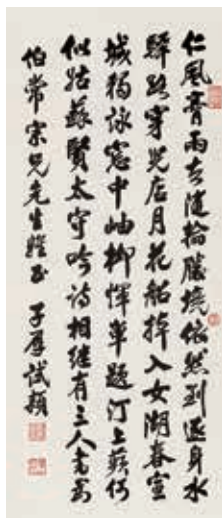 仁風膏雨去隨輪勝境依然到逐身水
驛路穿兒店月花船棹入女湖春宣
城獨詠窗中岫柳惲單題汀上蘋何
似姑蘇賢太守吟詩相繼有三人書為
伯常宗兄先生雅正 子厚試